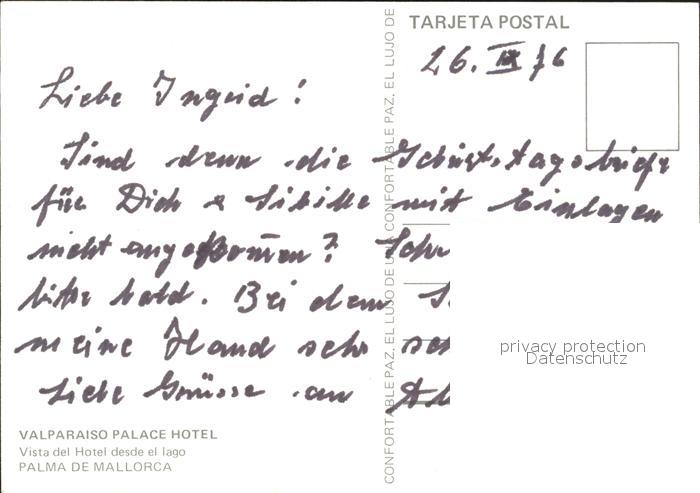 TARJETA POSTAL
26. IX 76
Liebe Ingrid!
Sind denn die Geburtstagsbriefe
für Dich & Sibille mit Einlagen
nicht angekommen? Schr
bitte bald. Bei dem S
meine Hand sehr
Liebe Grüsse an
CONFORTABLE PAZ, EL LUJO DE UNA CONFORTABLE PAZ, EL LUJO DE
privacy protection
Datenschutz
VALPARAISO PALACE HOTEL
Vista del Hotel desde el lago
PALMA DE MALLORCA